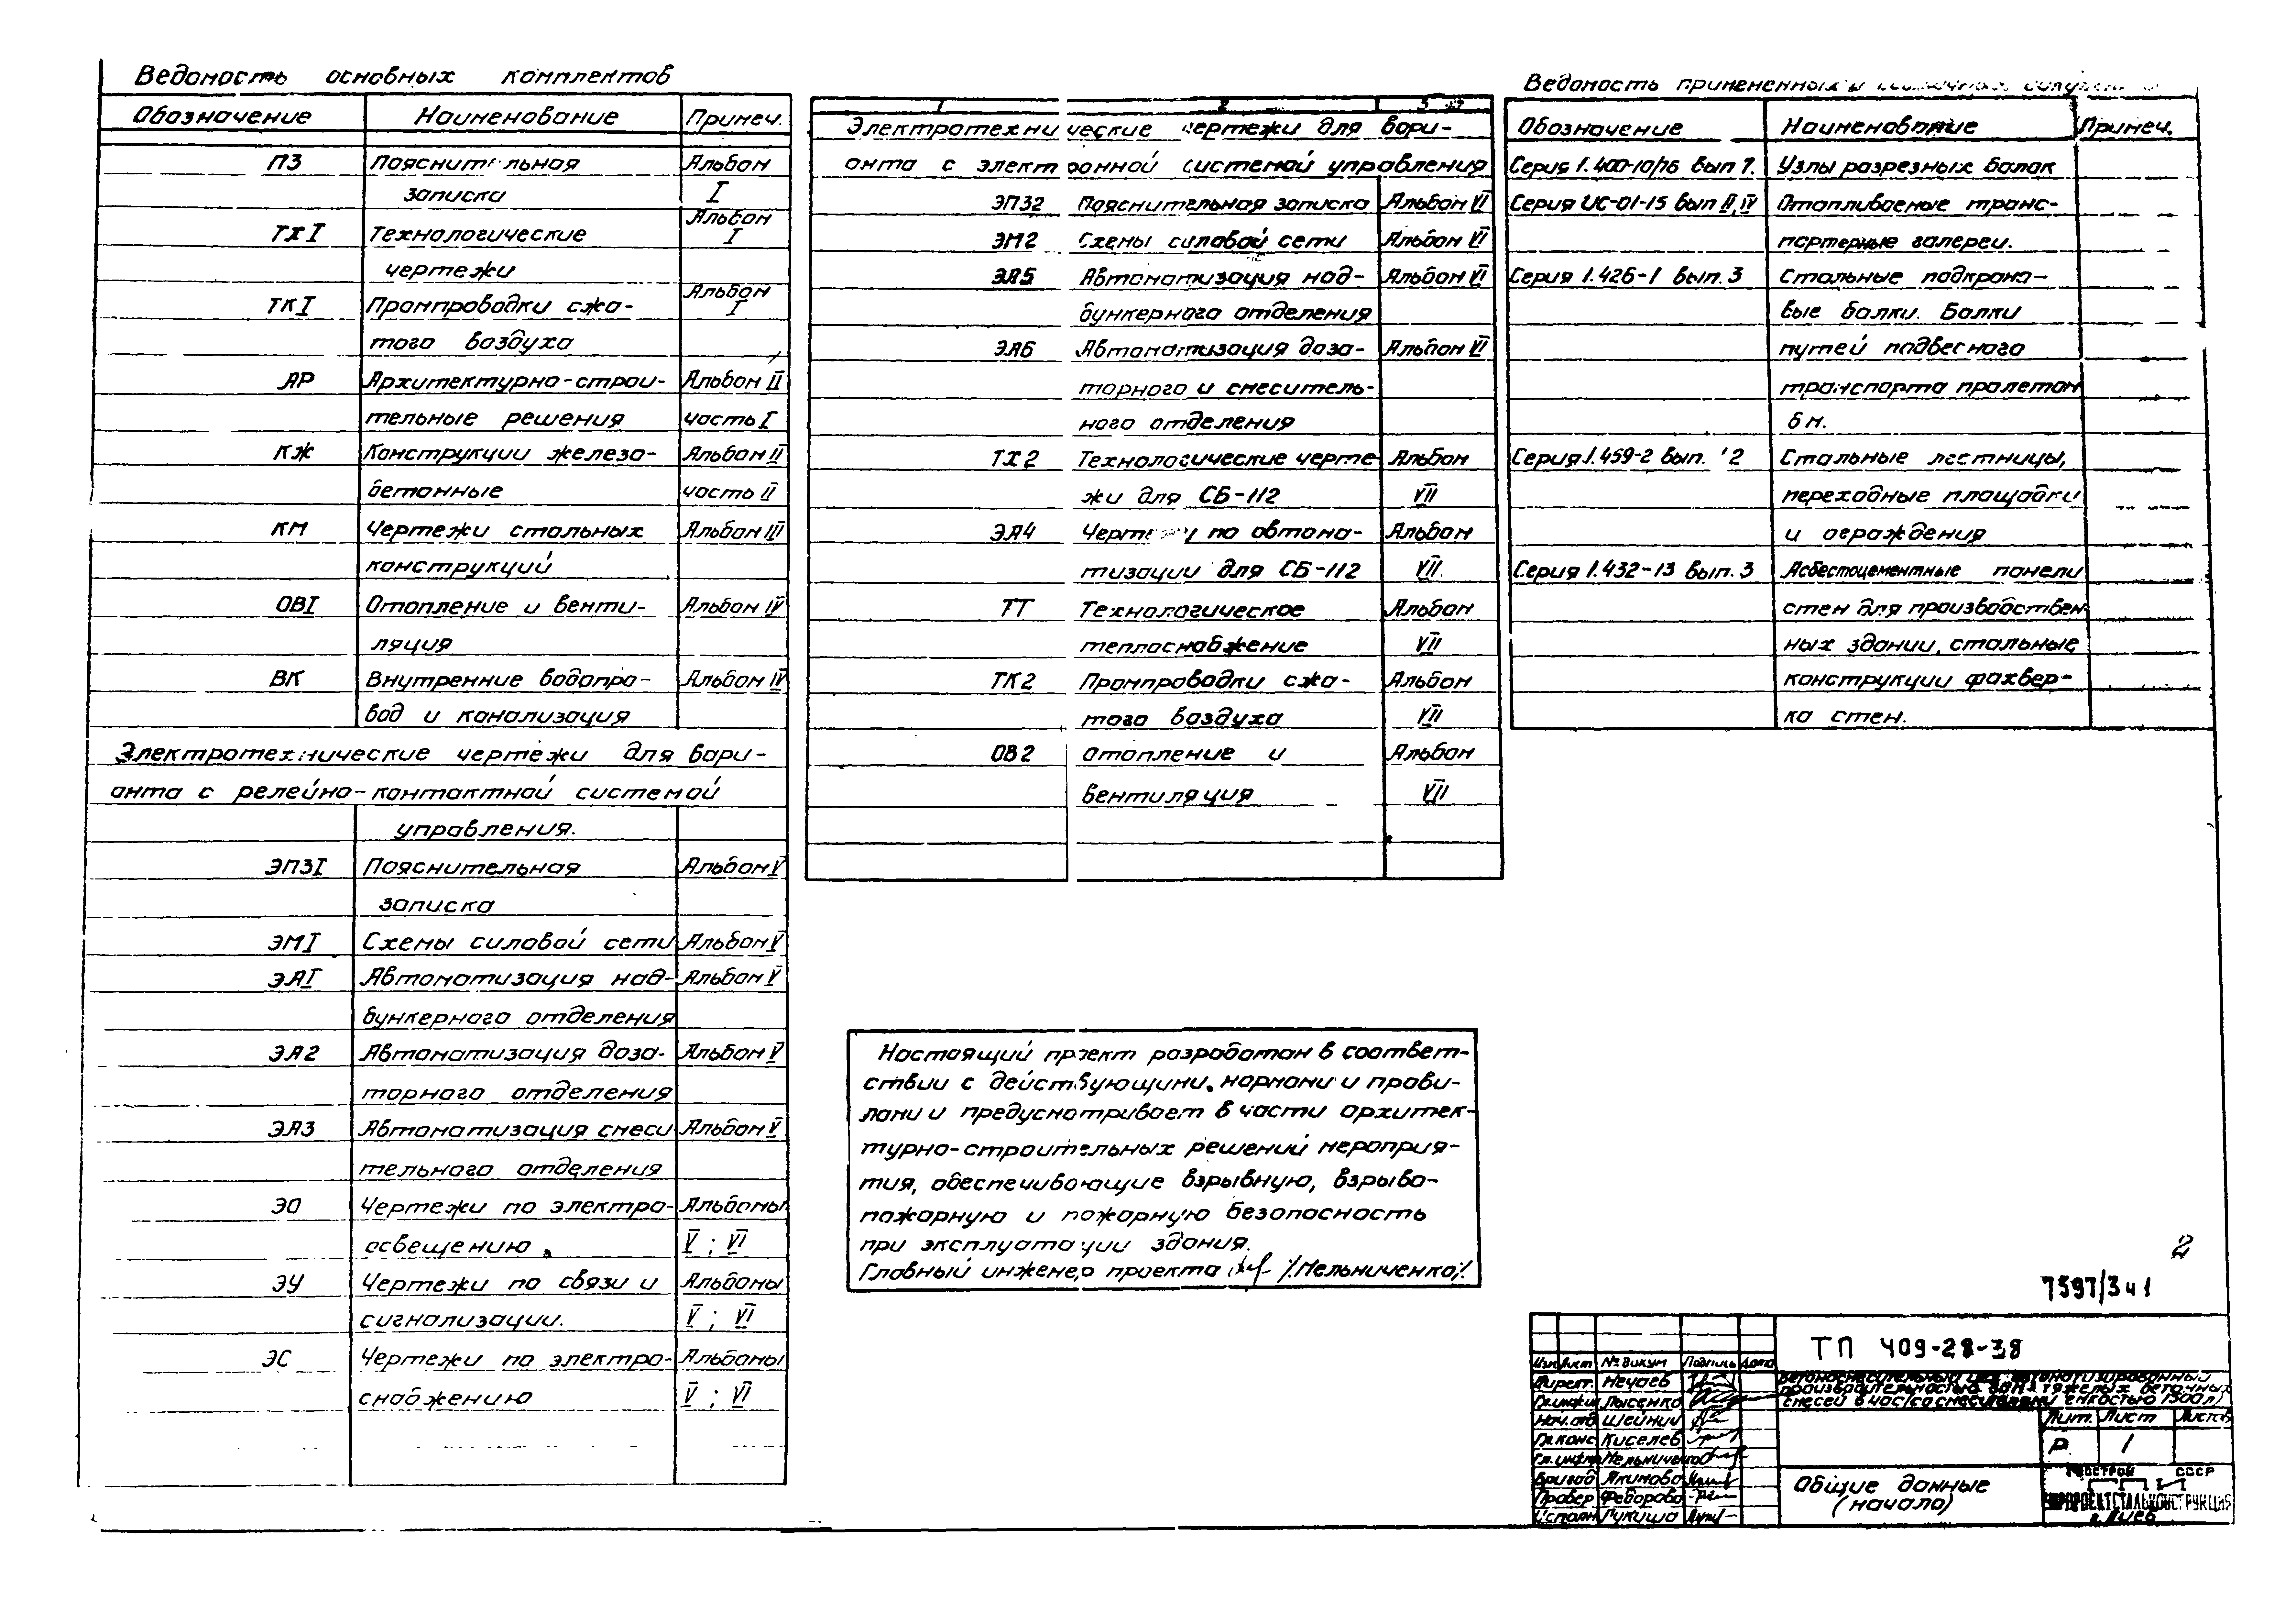 Ведомость основных комплектов
Обозначение Наименование Примеч.
ПЗ Пояснительная Альбом
записка I
ТХI Технологические Альбом I
чертежи
ТКI Промпроводки сжа- Альбом I
того воздуха
АР Архитектурно-строи- Альбом II
тельные решения часть I
КЖ Конструкции железо- Альбом II
бетонные часть II
КМ Чертежи стальных Альбом III
конструкций
ОВI Отопление и венти- Альбом IV
ляция
ВК Внутренние водопро- Альбом IV
вод и канализация
Электротехнические чертежи для вари-
анта с релейно-контактной системой
управления.
ЭПЗI Пояснительная Альбом V
записка
ЭМI Схемы силовой сети Альбом V
ЭАI Автоматизация над- Альбом V
бункерного отделения
ЭА2 Автоматизация доза- Альбом V
торного отделения
ЭА3 Автоматизация смеси Альбом V
тельного отделения
ЭО Чертежи по электро- Альбомы
освещению. V ; VI
ЭУ Чертежи по связи и Альбомы
сигнализации. V ; VI
ЭС Чертежи по электро- Альбомы
снабжению V ; VI
1 2 3
Электротехнические чертежи для вари-
анта с электронной системой управления
ЭПЗ2 Пояснительная записка Альбом VI
ЭМ2 Схемы силовой сети Альбом VI
ЭА5 Автоматизация над- Альбом VI
бункерного отделения
ЭА6 Автоматизация доза- Альбом VI
торного и смеситель-
ного отделения
ТХ2 Технологические черте Альбом
жи для СБ-112 VII
ЭА4 Чертежи по автома- Альбом
тизации для СБ-112 VII
ТТ Технологическое Альбом
теплоснабжение VII
ТК2 Промпроводки сжа- Альбом
того воздуха VII
ОВ2 отопление и Альбом
вентиляция VII
Ведомость примененных и
Обозначение Наименование Примеч.
Серия 1.400-10/76 вып 7. Узлы разрезных балок
Серия ИС-01-15 вып II, IV Отапливаемые транс-
портерные галереи.
Серия 1.426-1 вып. 3 Стальные подкрано-
вые балки. Балки
путей подвесного
транспорта пролетом
6 м.
Серия 1.459-2 вып. 2 Стальные лестницы,
переходные площадки
и ограждения
Серия 1.432-13 вып. 3 Асбестоцементные панели
стен для производствен
ных зданий, стальные
конструкции фахвер-
ка стен.
Настоящий проект разработан в соответ-
ствии с действующими нормами и прави-
лами и предусматривает в части архитек-
турно-строительных решений мероприя-
тия, обеспечивающие взрывную, взрыво-
пожарную и пожарную безопасность
при эксплуатации здания.
Главный инженер проекта /Мельниченко/
2
7597/3 и 1
ТП 409-28-38
Изм Лист № докум Подпись Дата
Директ. Нечаев
Гл.инжин Лысенко
Нач. отд Шейнич
Гл.конс Киселев
Гл.инж.пр Мельниченко
Бригад Якимова
Провер Федорова
Исполн Лукиша
Бетоносмесительный цех автоматизированный
производительностью тяжелых бетонных
смесей в час/со смесителями емкостью 1500 л/
Лит. Лист Листов
Р 1
Общие данные
(начало)
Госстрой СССР
УКРПРОЕКТСТАЛЬКОНСТРУКЦИЯ
г. Киев